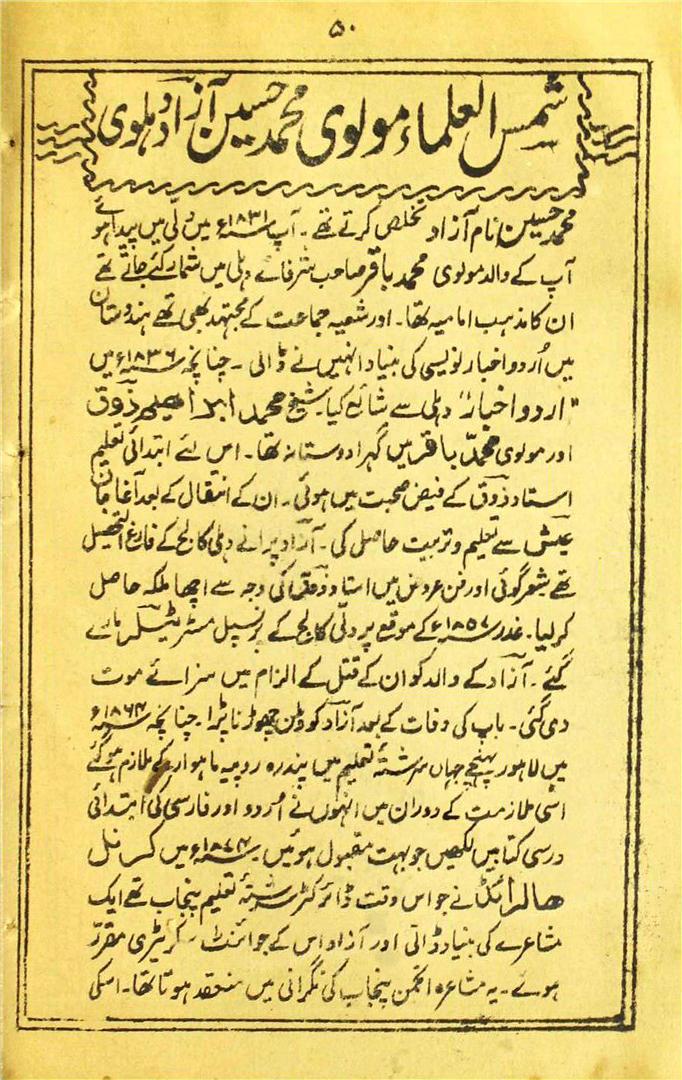 ۵۰
شمس العلماء مولوی محمد حسین آزاد دہلوی
محمد حسین نام آزاد تخلص کرتے تھے۔ آپ ۱۸۳۱ء میں دلّی میں پیدا ہوئے
آپ کے والد مولوی محمد باقر صاحب شرفائے دہلی میں شمار کئے جاتے تھے
ان کا مذہب امامیہ تھا۔ اور شعیہ جماعت کے مجتہد بھی تھے ہندوستان
میں اُردو اخبار نویسی کی بنیاد انہیں نے ڈالی۔ چنانچہ ۱۸۳۶ء میں
"اردو اخبار" دہلی سے شائع کیا۔ شیخ محمد ابراھیم ذوق
اور مولوی محمدّ باقر میں گہرا دوستانہ تھا۔ اس لئے ابتدائی تعلیم
استاد ذوق کے فیض صحبت میں ہوئی۔ ان کے انتقال کے بعد آغا جان
عیش سے تعلیم و تربیت حاصل کی۔ آزاد پرانے دہلی کالج کے فارغ التحصیل
تھے شعر گوئی اور فن عروض میں استاد ذوق کی وجہ سے اچھا ملکہ حاصل
کر لیا۔ غدر ۱۸۵۷ء کے موقع پر دلّی کالج کے پرنسپل مسٹر ٹیلر مارے
گئے۔ آزاد کے والد کو ان کے قتل کے الزام میں سزائے موت
دی گئی۔ باپ کی وفات کے بعد آزاد کو وطن چھوڑنا پڑا۔ چنانچہ ۱۸۶۴ء
میں لاہور پہنچے جہاں سررشتۂ تعلیم میں پندرہ روپیہ ماہوار کے ملازم ہو گئے
اسی ملازمت کے دوران میں انہوں نے اُردو اور فارسی کی ابتدائی
درسی کتابیں لکھیں جو بہت مقبول ہوئیں۔ ۱۸۷۴ء میں کرنل
ھالرائڈ نے جو اس وقت ڈائرکٹر سررشتۂ تعلیم پنجاب تھے ایک
مشاعرے کی بنیاد ڈالی اور آزاد اس کے جوائنٹ سکریٹری مقررّ
ہوئے۔ یہ مشاعرہ انجمن پنجاب کی نگرانی میں منعقد ہوتا تھا۔ اسکی